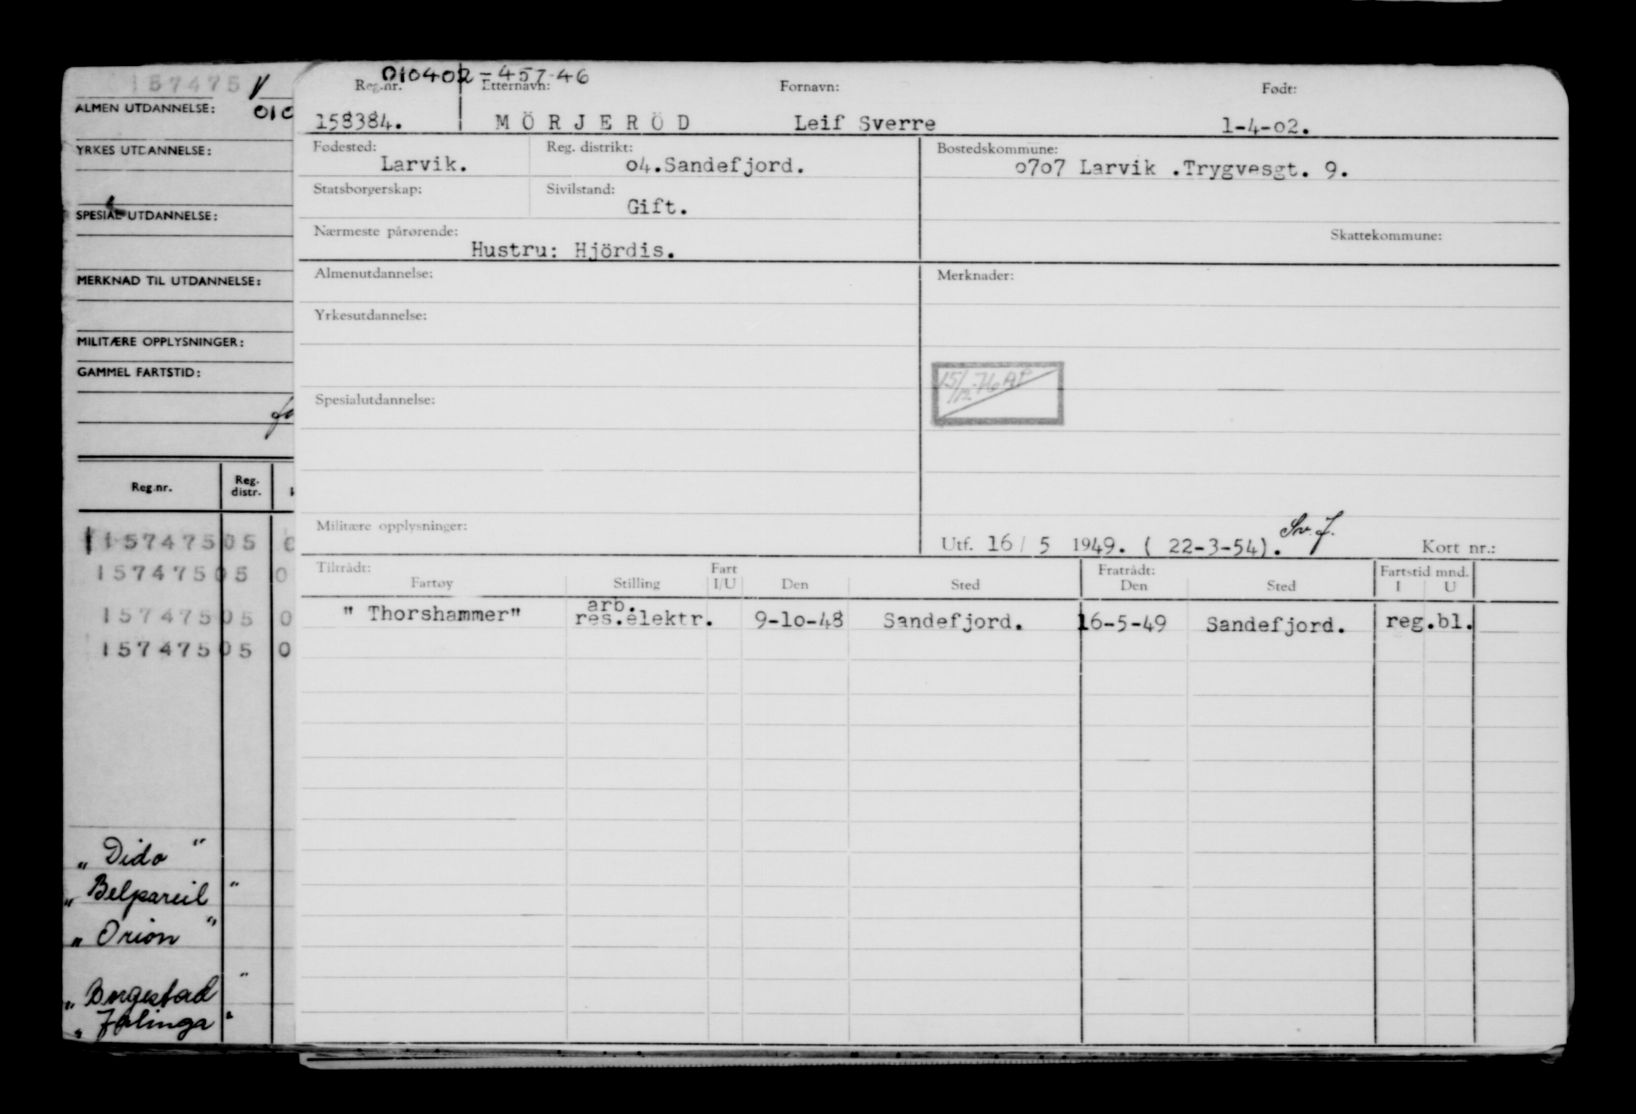 157475
ALMEN UTDANNELSE:
010
YRKES UTDANNELSE:
SPESIAL UTDANNELSE:
MERKNAD TIL UTDANNELSE:
MILITÆRE OPPLYSNINGER:
GAMMEL FARTSTID:
Reg.nr. Reg. distr.
157475 05 0
157475 05 0
157475 05 0
157475 05 0
„ Dido "
„ Belpareil "
„ Orion "
„ Borgestad "
010402-457-46
Reg.nr. Etternavn: Fornavn: Født:
158384. MÖRJERÖD Leif Sverre 1-4-02.
Fødested: Reg. distrikt: Bostedskommune:
Larvik. 04.Sandefjord. 0707 Larvik .Trygvesgt. 9.
Statsborgerskap: Sivilstand:
Gift.
Nærmeste pårørende: Skattekommune:
Hustru: Hjördis.
Almenutdannelse: Merknader:
Yrkesutdannelse:
15/12-76 AP
Spesialutdannelse:
Militære opplysninger:
Utf. 16/ 5 1949. ( 22-3-54). Kort nr.:
Tiltrådt: Fart Fratrådt: Fartstid mnd.
Fartøy Stilling I/U Den Sted Den Sted I U
" Thorshammer" arb. res.elektr. 9-10-48 Sandefjord. 16-5-49 Sandefjord. reg.bl.